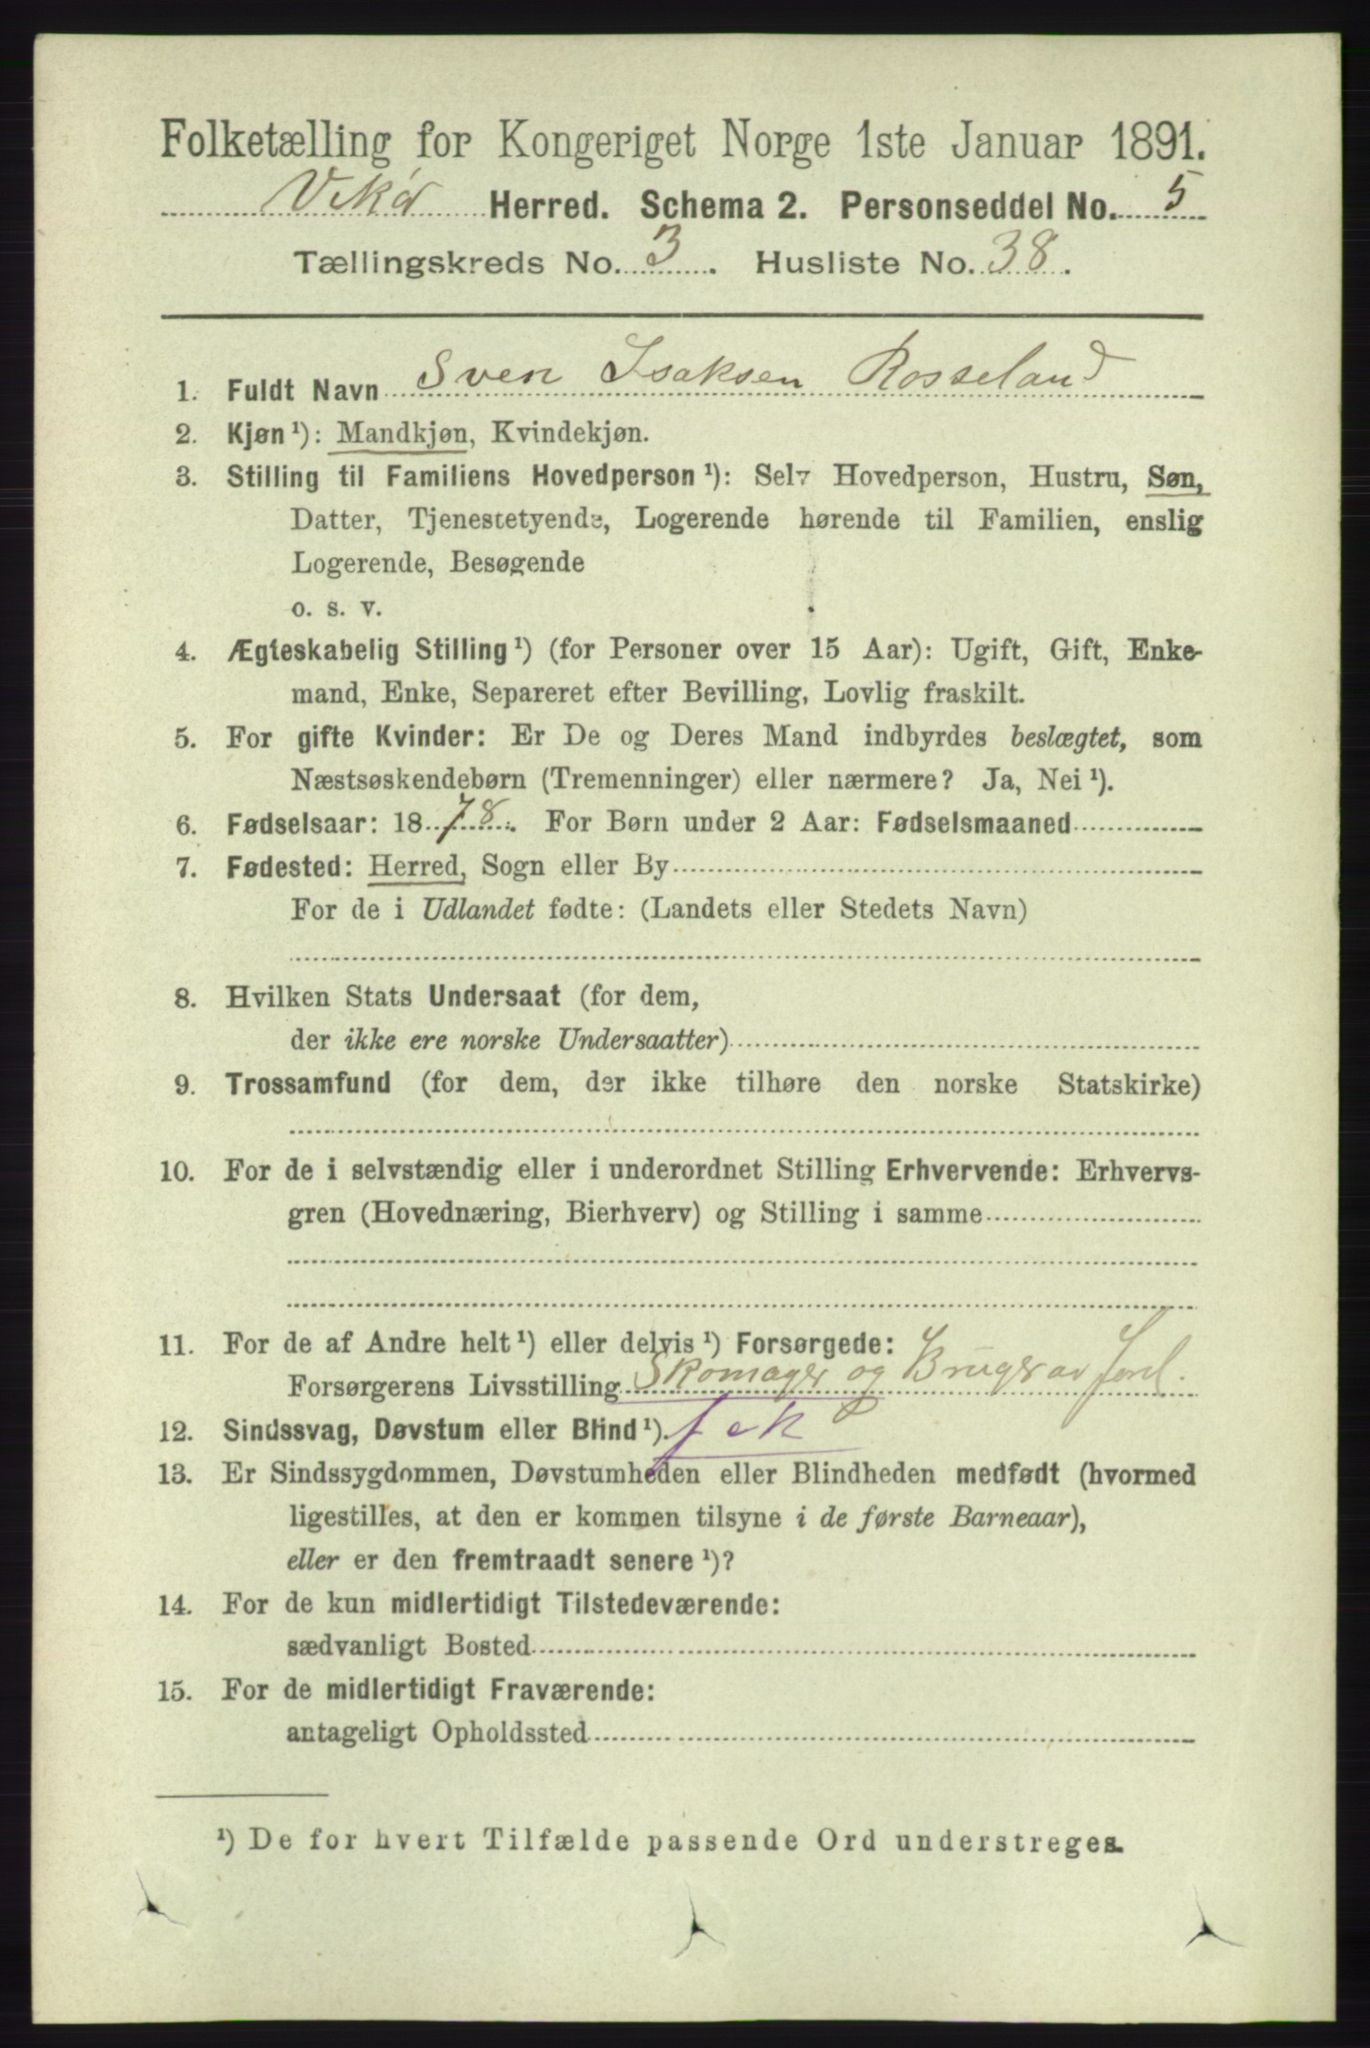 Folketælling for Kongeriget Norge 1ste Januar 1891.
Vikør Herred. Schema 2. Personseddel No. 5
Tællingskreds No. 3. Husliste No. 38.
1. Fuldt Navn Sven Isaksen Rosseland
2. Kjøn ¹): Mandkjøn, Kvindekjøn.
3. Stilling til Familiens Hovedperson ¹): Selv Hovedperson, Hustru, Søn,
Datter, Tjenestetyende, Logerende hørende til Familien, enslig
Logerende, Besøgende
o. s. v.
4. Ægteskabelig Stilling ¹) (for Personer over 15 Aar): Ugift, Gift, Enke-
mand, Enke, Separeret efter Bevilling, Lovlig fraskilt.
5. For gifte Kvinder: Er De og Deres Mand indbyrdes beslægtet, som
Næstsøskendebørn (Tremenninger) eller nærmere? Ja, Nei ¹).
6. Fødselsaar: 1878. For Børn under 2 Aar: Fødselsmaaned
7. Fødested: Herred, Sogn eller By
For de i Udlandet fødte: (Landets eller Stedets Navn)
8. Hvilken Stats Undersaat (for dem,
der ikke ere norske Undersaatter)
9. Trossamfund (for dem, der ikke tilhøre den norske Statskirke)
10. For de i selvstændig eller i underordnet Stilling Erhvervende: Erhvervs-
gren (Hovednæring, Bierhverv) og Stilling i samme
11. For de af Andre helt ¹) eller delvis ¹) Forsørgede:
Forsørgerens Livsstilling Skomager og Bruger av Jord.
12. Sindssvag, Døvstum eller Blind ¹).
13. Er Sindssygdommen, Døvstumheden eller Blindheden medfødt (hvormed
ligestilles, at den er kommen tilsyne i de første Barneaar),
eller er den fremtraadt senere ¹)?
14. For de kun midlertidigt Tilstedeværende:
sædvanligt Bosted
15. For de midlertidigt Fraværende:
antageligt Opholdssted
¹) De for hvert Tilfælde passende Ord understreges.